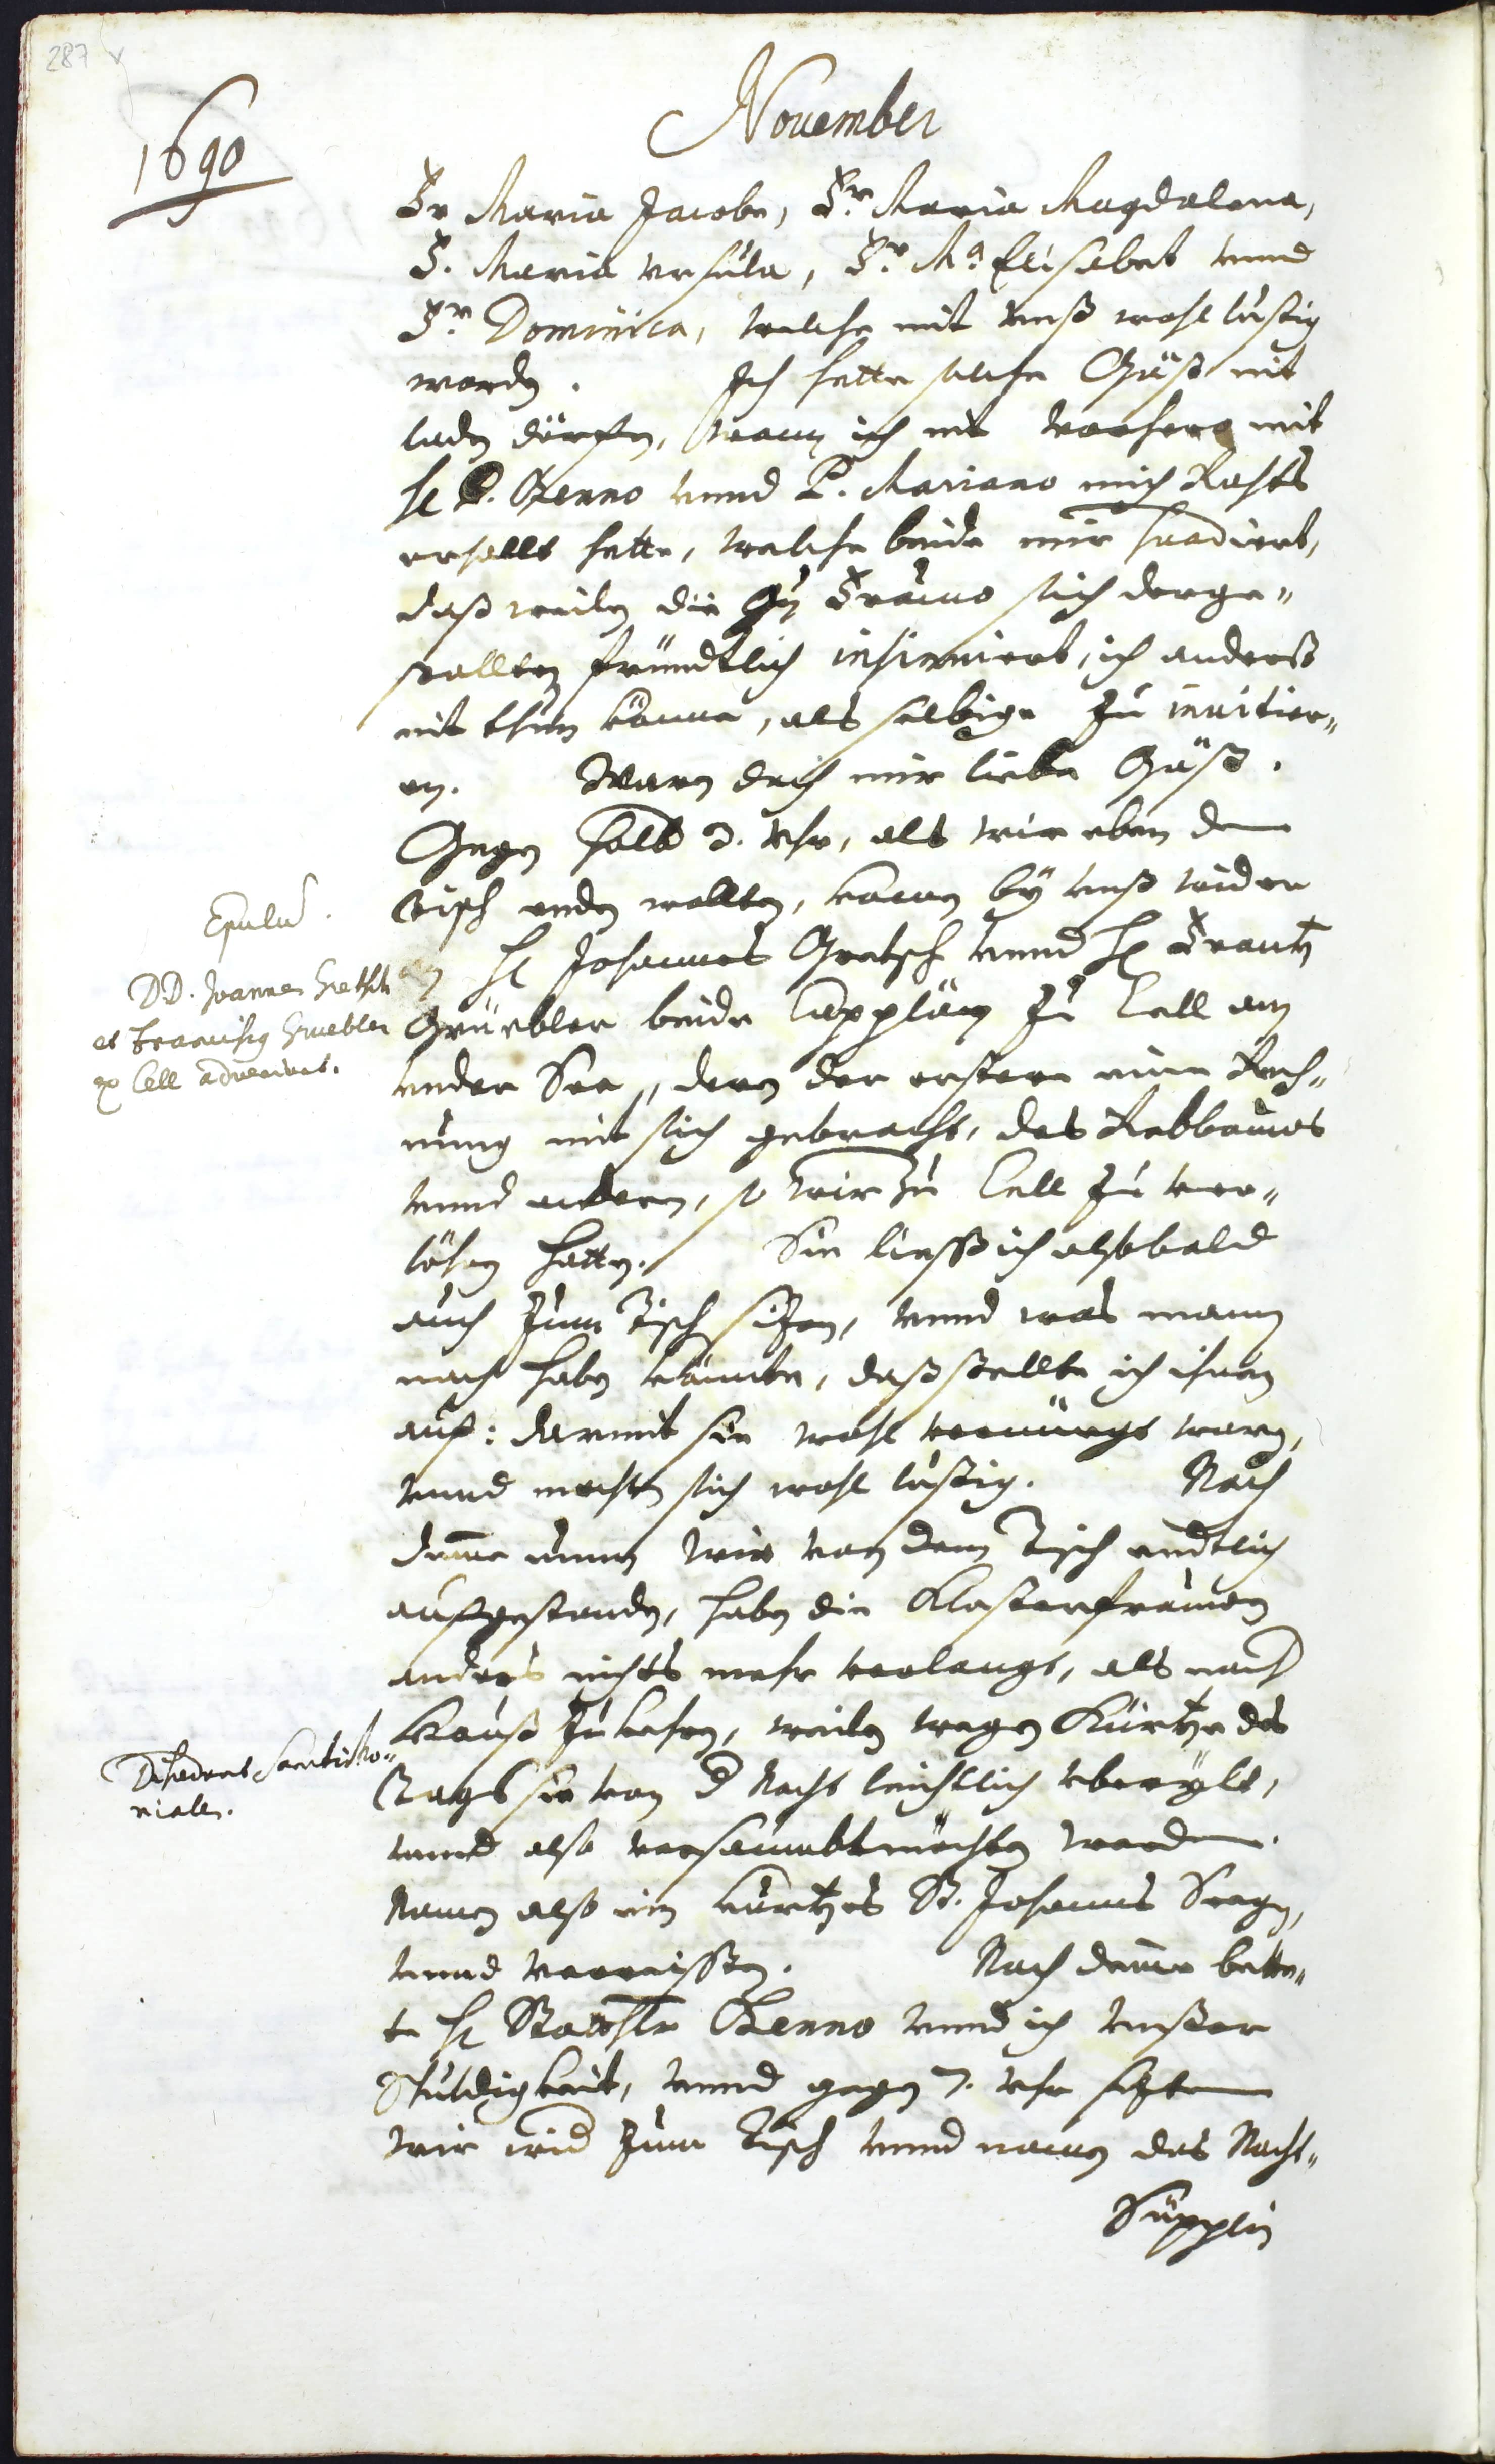 287 v
1690
November
Fr. Maria Jacobe, Fr. Maria Magdalena,
F. Maria Ursula, Fr. Ma. Elisabet vnnd
Fr. Dominica, welche mit vnß wohl lustig
waren. Ich hette solche Gäst nit
laden dörffen, wann ich nit vorhero mit
H. P. Benno vnnd P. Mariano mich Rahts
erhollt hette, welche beide mir suadiert,
daß weilen die Fräuwo sich derge„
stallten fründtlich insinuiert, ich anderß
nit thun könne, als selbige zu inuitier„
en. Waren doch mir liebe Gäst.
Gegen halb 3. Vhr, als wir eben den
Tisch enden wollten, kamen by vnß wider
an H. Johannes Gretsch vnnd H. Frantz
Grüebler beide Capplän zu Cell am
vnder See, deren der erstere eine Rech„
nung mit sich gebracht, des Rebbauws
vnnd anderen, so wir zu Cell zu ver„
lösen hetten. Sie ließ ich alsobald
auch zum Tisch sizen, vnnd was mann
noch haben könnte, daß stellte ich ihnen
auf: darmit sie wohl vernüegt waren,
vnnd machten sich wohl lustig. Nach
deme nunn wir von dem Tisch endtlich
aufgestanden, haben die Closterfrauwen
anders nichts mehr verlangt, als nach
Hauß zu kehren, weilen wegen Kürtze des
Tags sie von d Nacht leichtlich vbereylt,
vnnd also versaumbt möchten werden.
Namen also ein kurtzes St. Johannis Seegen,
vnnd verreisten. Nach deme bette„
te H. Statthlr Benno vnnd ich vnßer
Schuldigkeit, vnnd gegen 7. Vhr sezten
wir wid zum Tisch vnnd namen das Nacht„
Süpplin
Epulae.
DD. Joannes Gretsch
et Franciscus Gruebler
ex Cell adveniunt.
Discedunt Sanctimo„
niales.